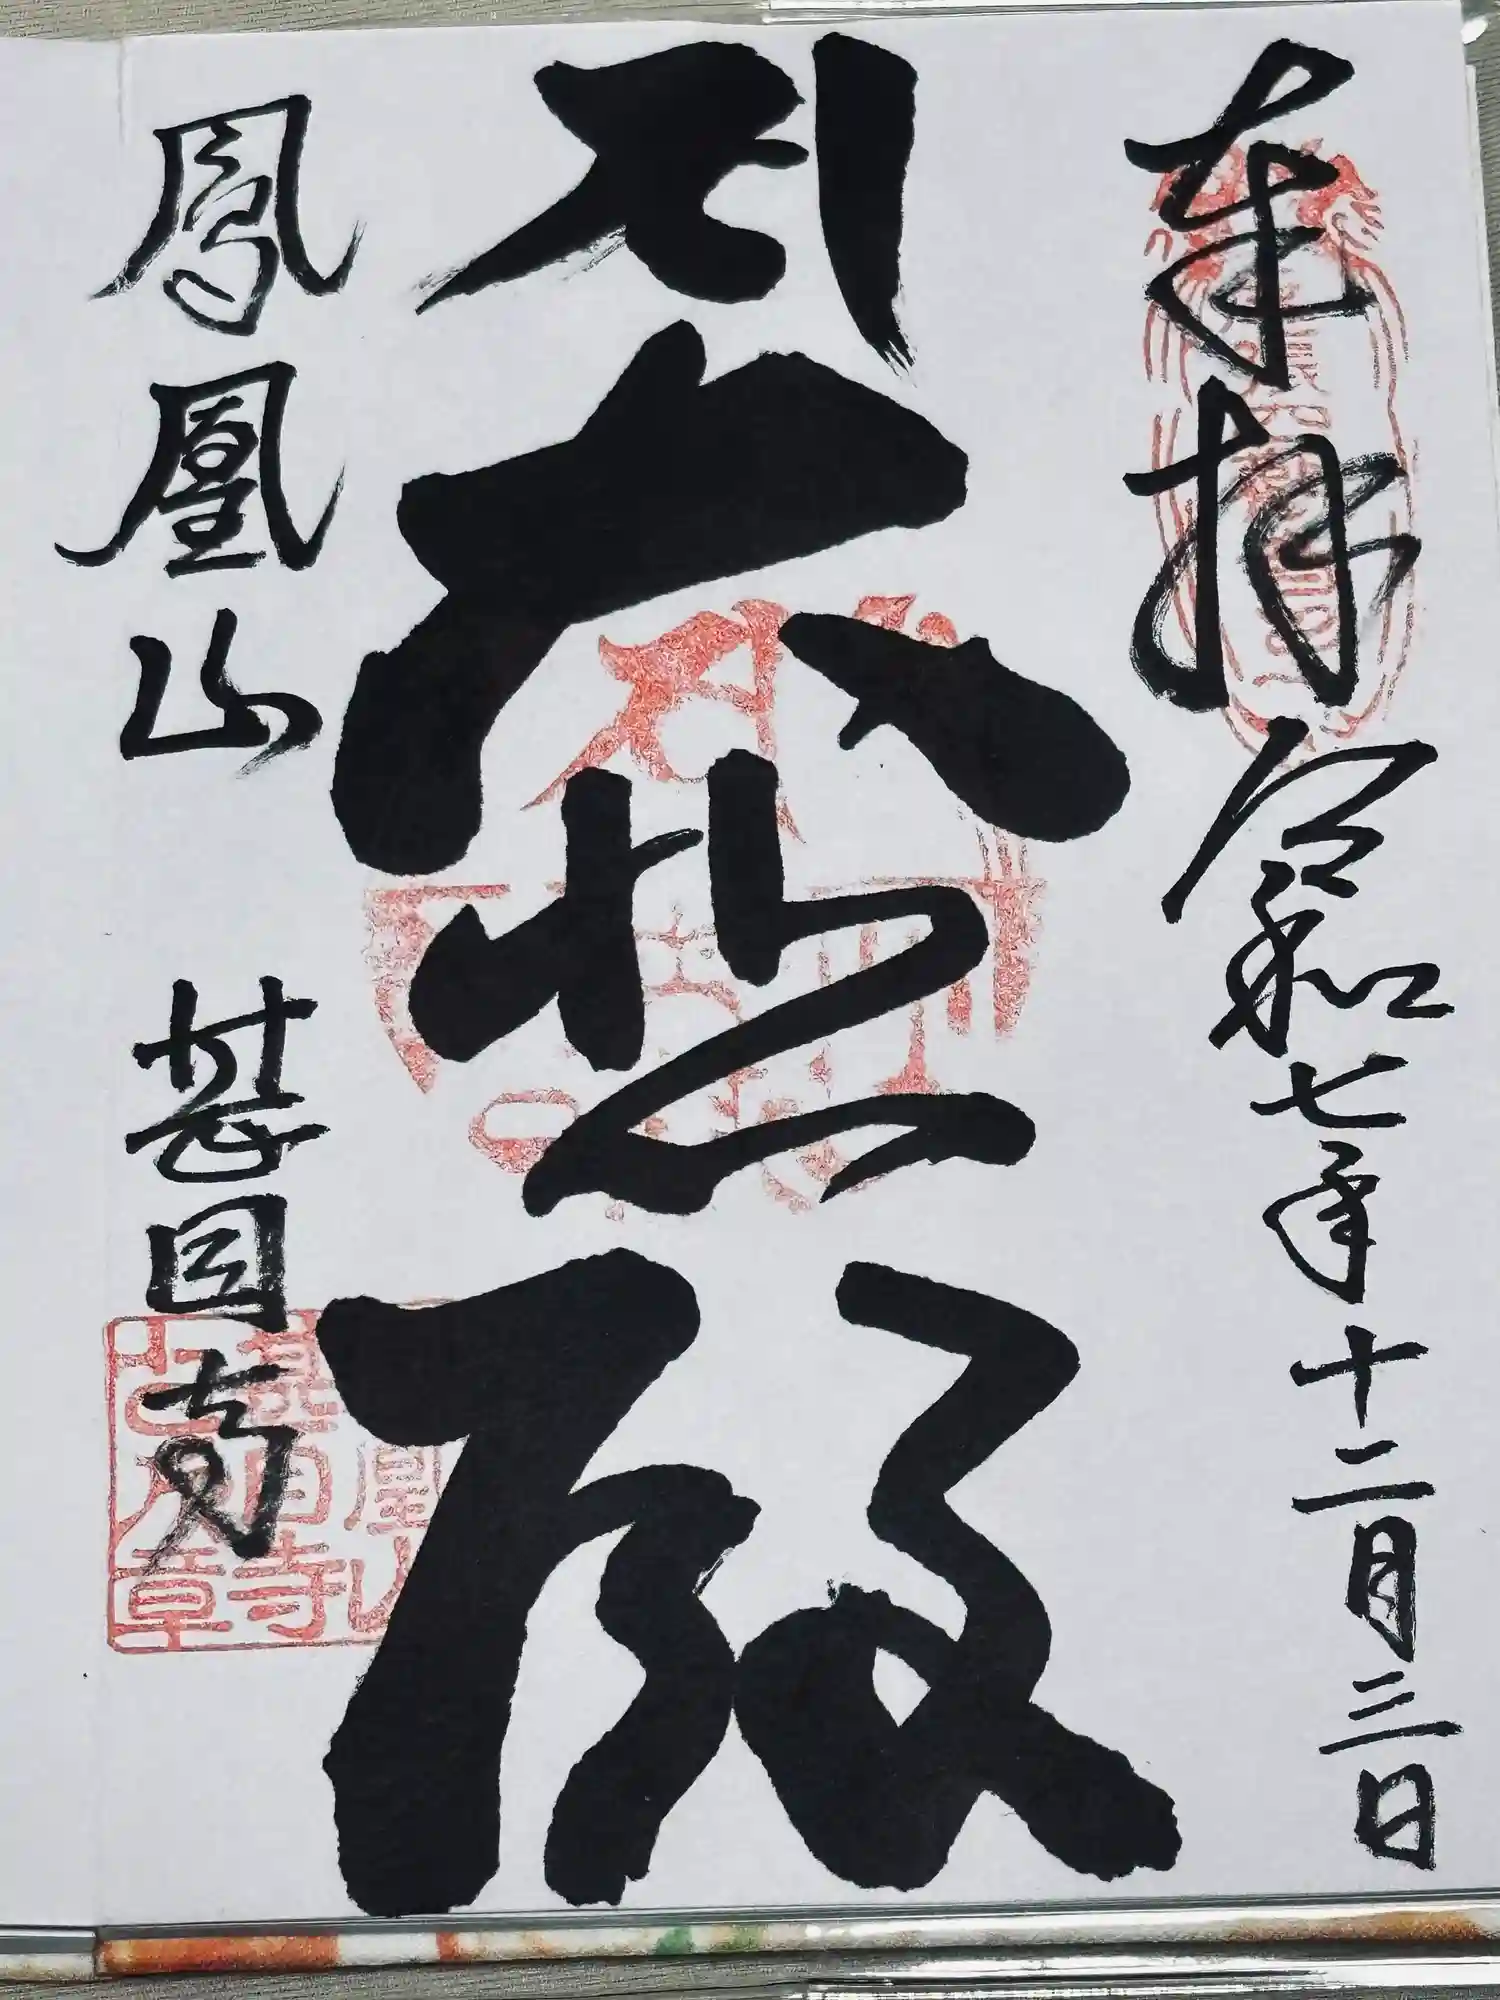 奉拝 令和七年十二月三日
大悲殿
鳳凰山 甚目寺
凰山
甚目寺